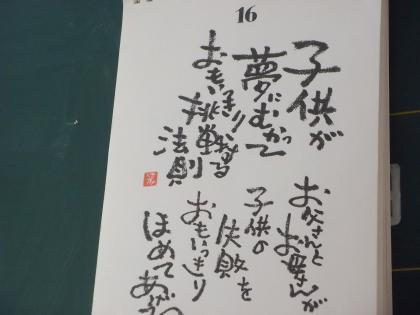 16
子供が
夢にむかって
おもいきり
挑戦する
法則
お父さんと
お母さんが
子供の
失敗を
おもいっきり
ほめて